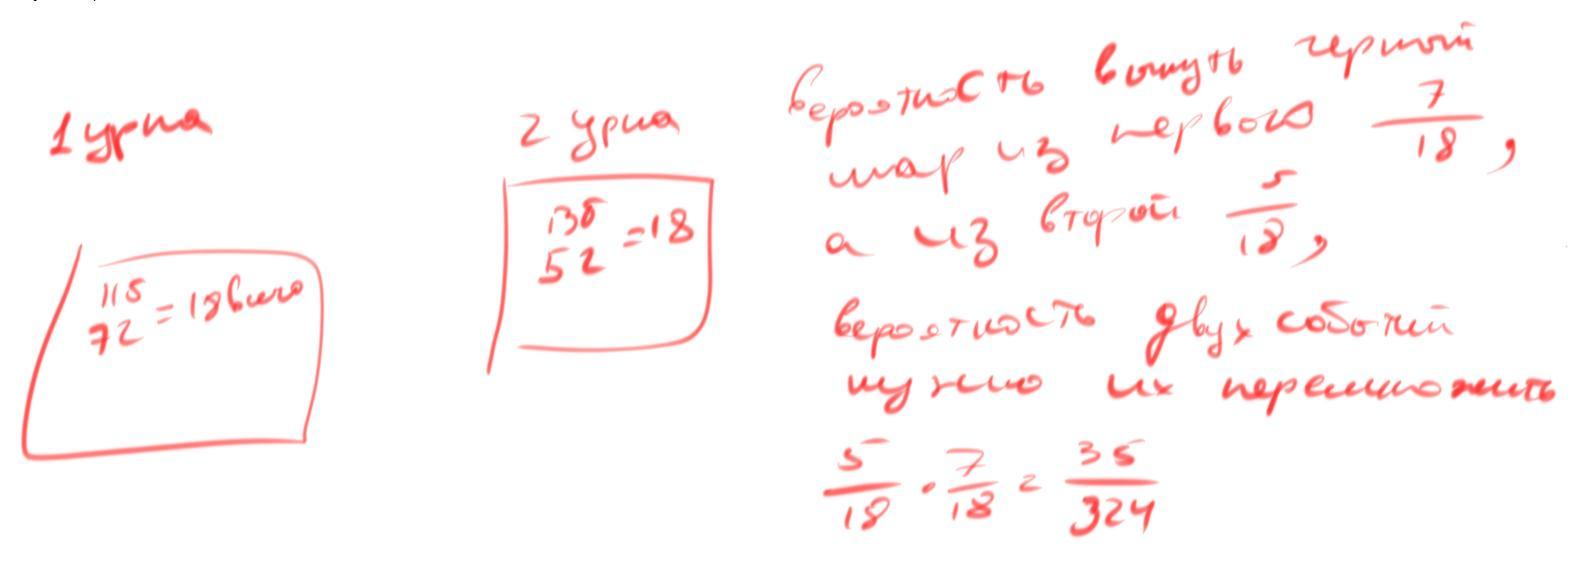 1 урна
11б
72 = 18 всего
2 урна
13б
52 = 18
вероятность вынуть черный
шар из первого 7/18,
а из второй 5/18,
вероятность двух событий
нужно их перемножить
5/18 · 7/18 = 35/324